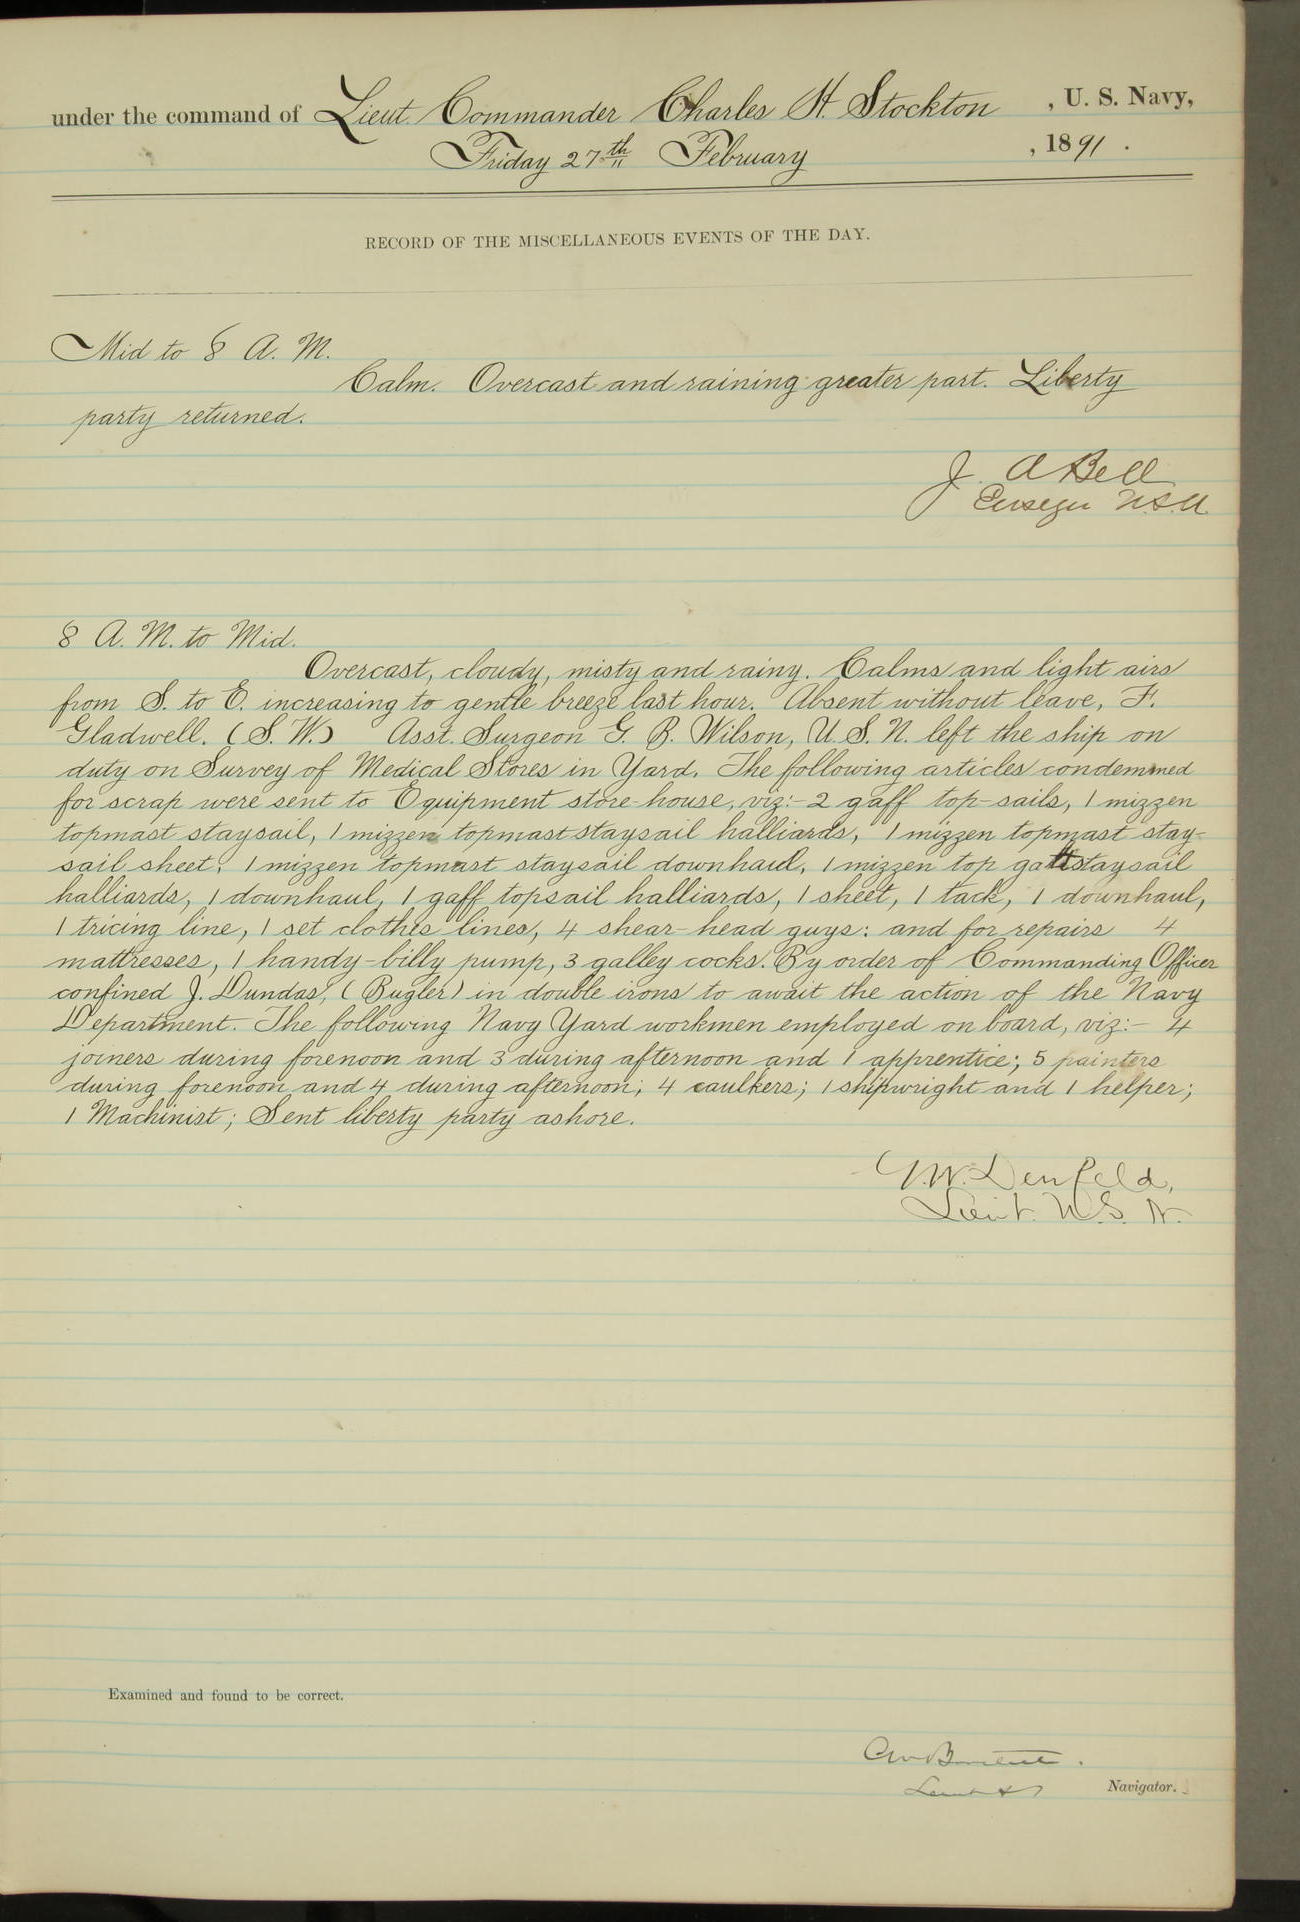 under the command of Lieut. Commander Charles H. Stockton , U. S. Navy,
Friday 27th February , 1891 .
RECORD OF THE MISCELLANEOUS EVENTS OF THE DAY.
Mid to 8 A. M.
Calm. Overcast and raining greater part. Liberty
party returned.
J. A Bell
Ensign U.S.N.
8 A. M. to Mid.
Overcast, cloudy, misty and rainy. Calms and light airs
from S. to E. increasing to gentle breeze last hour. Absent without leave, F.
Gladwell. (S. W.) Asst. Surgeon G. B. Wilson, U. S. N. left the ship on
duty on Survey of Medical Stores in Yard. The following articles condemned
for scrap were sent to Equipment store-house, viz:- 2 gaff top-sails, 1 mizzen
topmast staysail, 1 mizzen topmast staysail halliards, 1 mizzen topmast stay-
sail sheet, 1 mizzen topmast staysail downhaul, 1 mizzen top gallt staysail
halliards, 1 downhaul, 1 gaff topsail halliards, 1 sheet, 1 tack, 1 downhaul,
1 tricing line, 1 set clothes lines, 4 shear-head guys: and for repairs 4
mattresses, 1 handy-billy pump, 3 galley cocks. By order of Commanding Officer
confined J. Dundas, (Bugler) in double irons to await the action of the Navy
Department. The following Navy Yard workmen employed on board, viz:- 4
joiners during forenoon and 3 during afternoon and 1 apprentice; 5 painters
during forenoon and 4 during afternoon; 4 caulkers; 1 shipwright and 1 helper;
1 Machinist; Sent liberty party ashore.
G.W. Denfeld,
Lieut. U.S. N.
Examined and found to be correct.
Lieut &
Navigator.